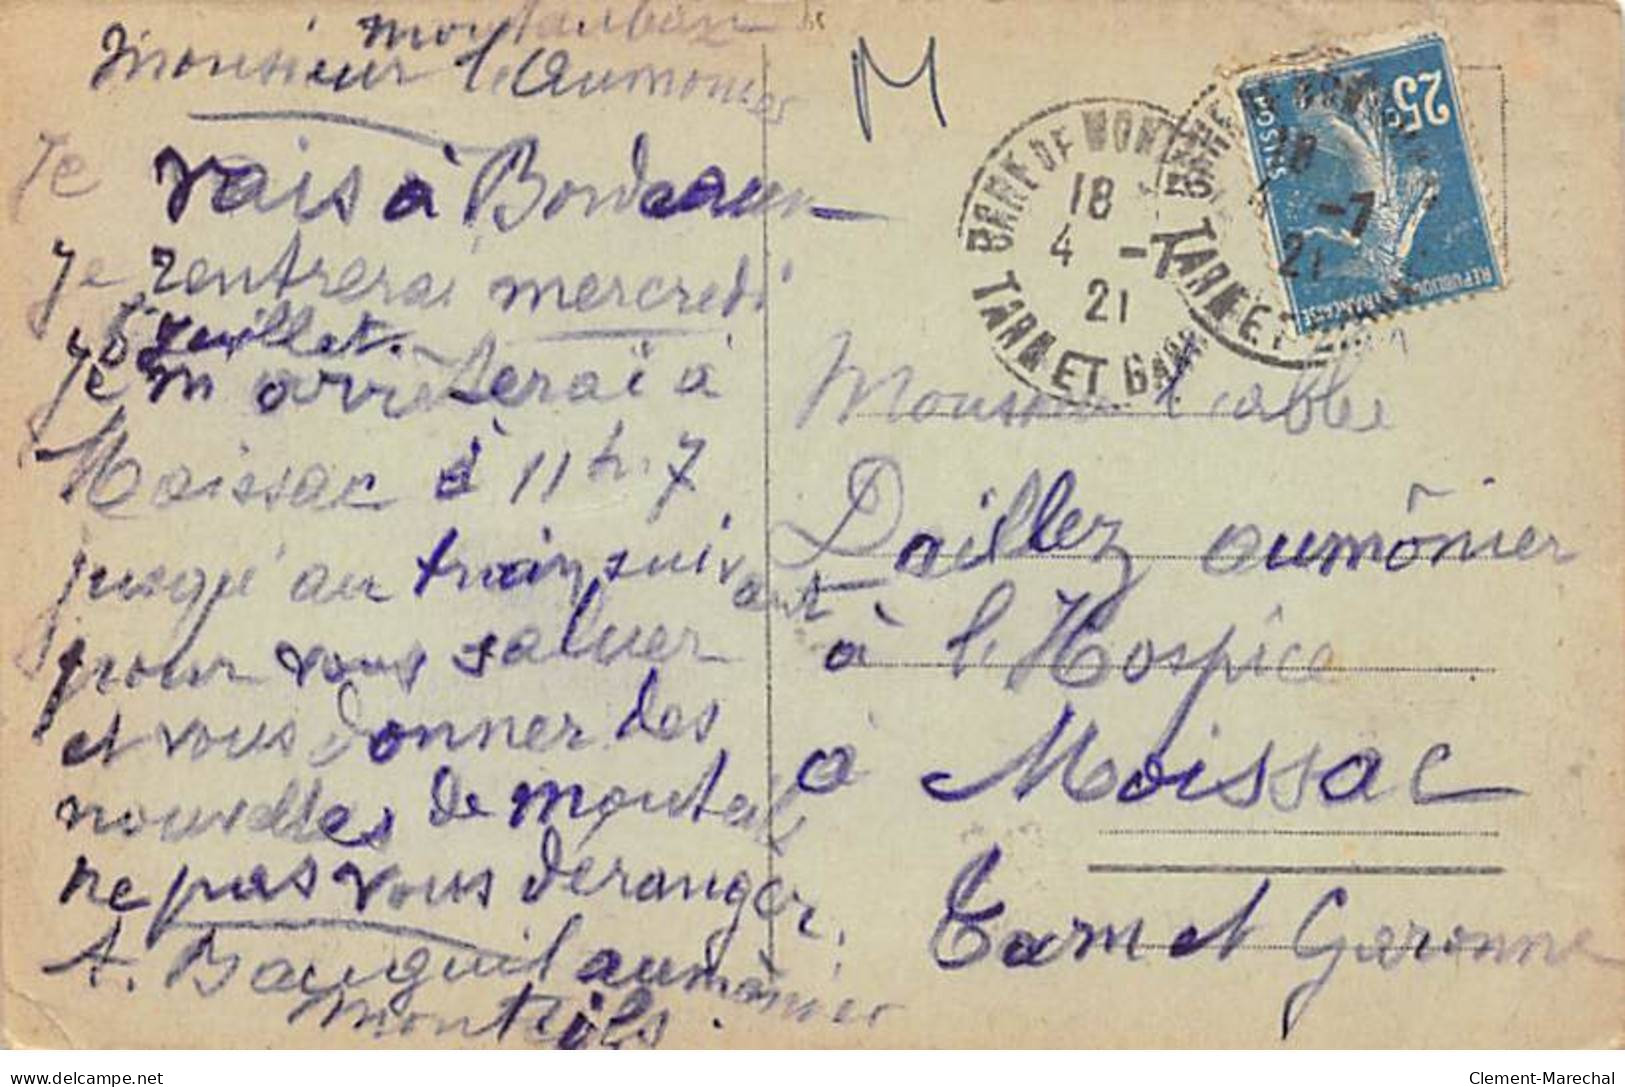 montauban
Monsieur l'Aumonier
Je vais à Bordeaux
Je rentrerai mercredi
6 Juillet.
Je m arrêteraï à
Moissac à 11 h. 7
jusqu'au train suivant
pour vous saluer
et vous donner des
nouvelles de monteils
ne pas vous déranger,
A. Bauguil aumônier
Monteils.
M
BARRE DE MONT
18
4 -7
21
TARN ET GAR
18
-7
21
TARN ET
25c
POSTES
REPUBLIQUE FRANÇAISE
Monsieur l'abbé
Daillez aumônier
à l'Hospice
à Moissac
Tarn et Garonne
delcampe.net
Clement-Marechal